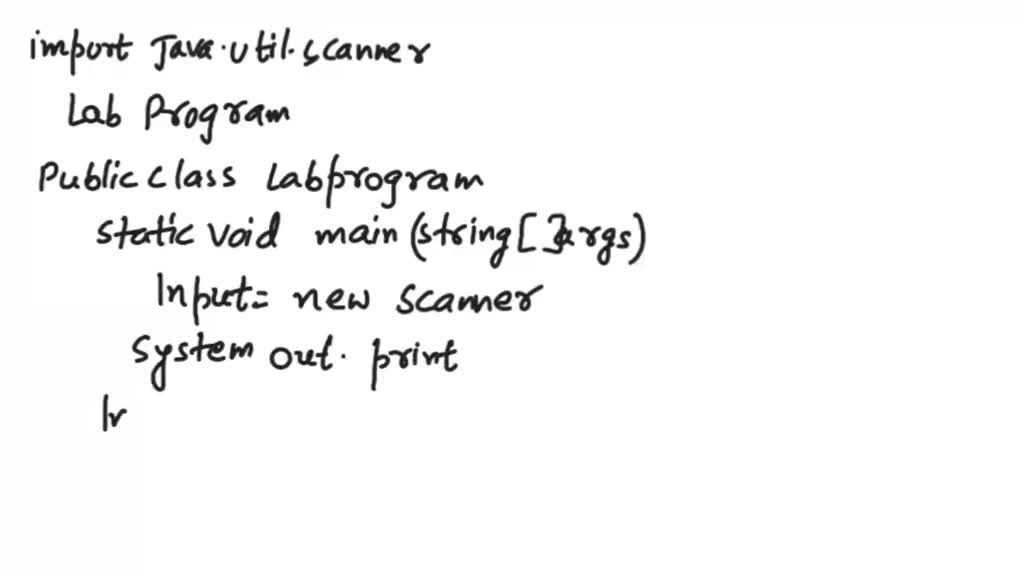 import Java.util.scanner
Lab Program
Public class Labprogram
static void main (string[]args)
Input= new scanner
System out. print
In